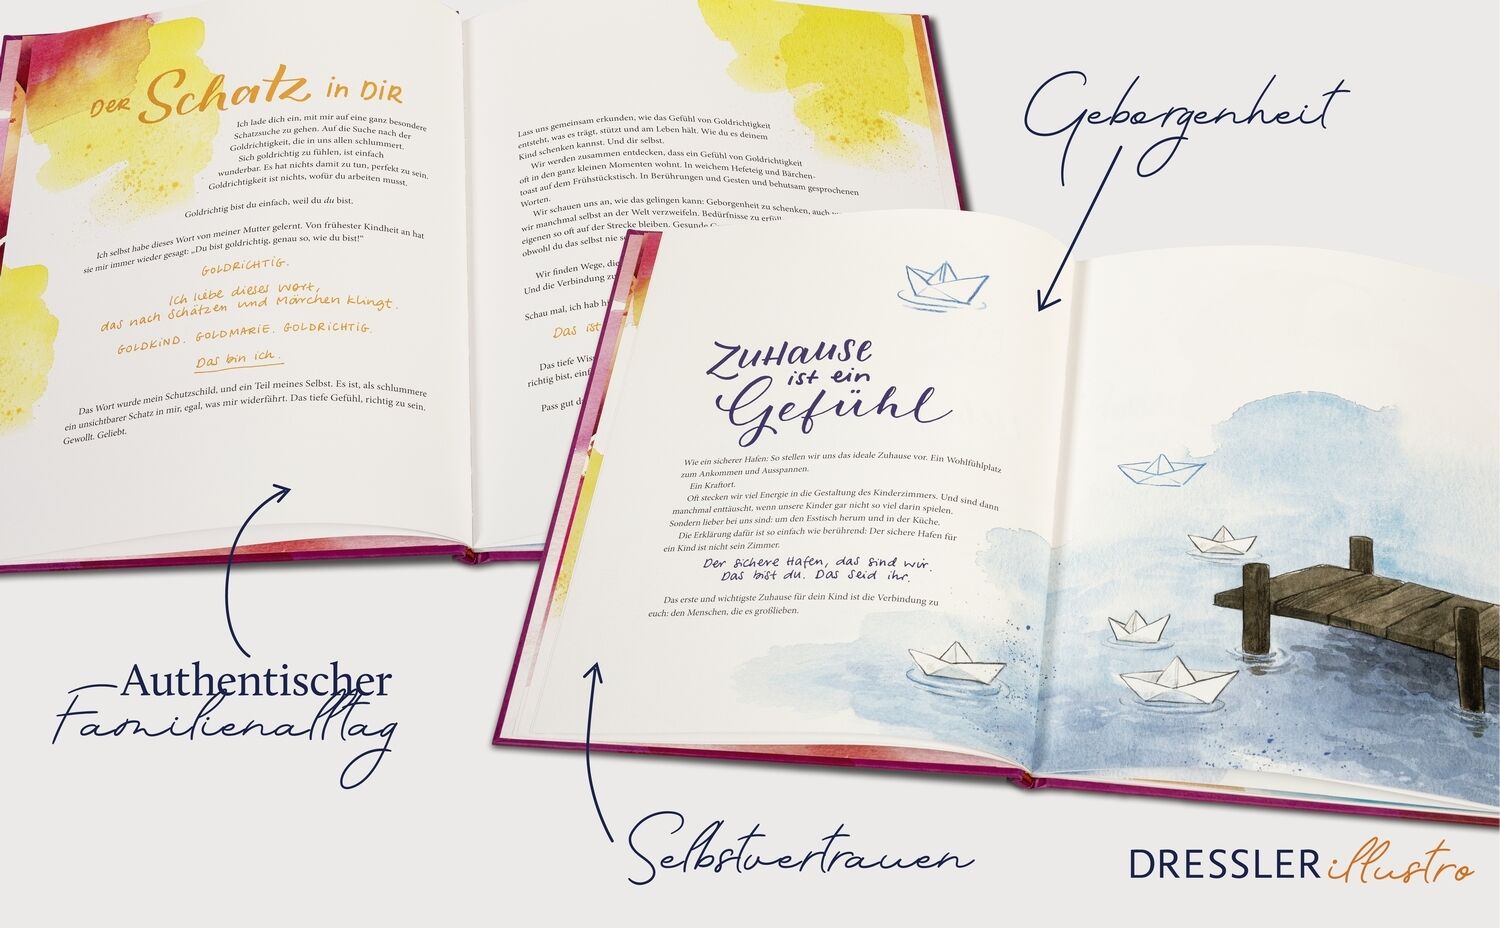 DER Schatz in DIR
Ich lade dich ein, mit mir auf eine ganz besondere
Schatzsuche zu gehen. Auf die Suche nach der
Goldrichtigkeit, die in uns allen schlummert.
Sich goldrichtig zu fühlen, ist einfach
wunderbar. Es hat nichts damit zu tun, perfekt zu sein.
Goldrichtigkeit ist nichts, wofür du arbeiten musst.
Goldrichtig bist du einfach, weil du du bist.
Ich selbst habe dieses Wort von meiner Mutter gelernt. Von frühester Kindheit an hat
sie mir immer wieder gesagt: „Du bist goldrichtig, genau so, wie du bist!“
GOLDRICHTIG.
Ich liebe dieses Wort,
das nach Schätzen und Märchen klingt.
GOLDKIND. GOLDMARIE. GOLDRICHTIG.
Das bin ich.
Das Wort wurde mein Schutzschild, und ein Teil meines Selbst. Es ist, als schlummere
ein unsichtbarer Schatz in mir, egal, was mir widerfährt. Das tiefe Gefühl, richtig zu sein.
Gewollt. Geliebt.
Lass uns gemeinsam erkunden, wie das Gefühl von Goldrichtigkeit
entsteht, was es trägt, stützt und am Leben hält. Wie du es deinem
Kind schenken kannst. Und dir selbst.
Wir werden zusammen entdecken, dass ein Gefühl von Goldrichtigkeit
oft in den ganz kleinen Momenten wohnt. In weichem Hefeteig und Bärchen-
toast auf dem Frühstückstisch. In Berührungen und Gesten und behutsam gesprochenen
Worten.
Wir schauen uns an, wie das gelingen kann: Geborgenheit zu schenken, auch
wir manchmal selbst an der Welt verzweifeln. Bedürfnisse zu
eigenen so oft auf der Strecke bleiben. Gesunde
obwohl du das selbst nie
Wir finden Wege, die
Und die Verbindung zu
Schau mal, ich hab
Das ist
Das tiefe
richtig bist,
Pass gut
Geborgenheit
ZUHAUSE
ist ein
Gefühl
Wie ein sicherer Hafen: So stellen wir uns das ideale Zuhause vor. Ein Wohlfühlplatz
zum Ankommen und Ausspannen.
Ein Kraftort.
Oft stecken wir viel Energie in die Gestaltung des Kinderzimmers. Und sind dann
manchmal enttäuscht, wenn unsere Kinder gar nicht so viel darin spielen.
Sondern lieber bei uns sind: um den Esstisch herum und in der Küche.
Die Erklärung dafür ist so einfach wie berührend: Der sichere Hafen für
ein Kind ist nicht sein Zimmer.
Der sichere Hafen, das sind wir.
Das bist du. Das seid ihr.
Das erste und wichtigste Zuhause für dein Kind ist die Verbindung zu
euch: den Menschen, die es großlieben.
Authentischer
Familienalltag
Selbstvertrauen
DRESSLER illustro